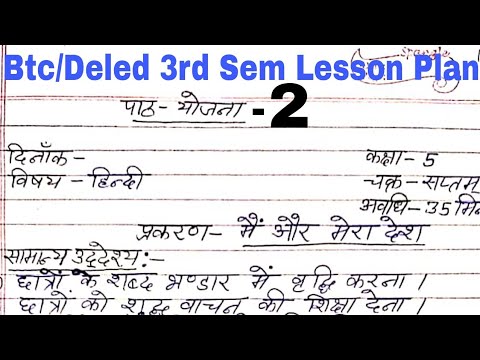 Btc/Deled 3rd Sem Lesson Plan
पाठ-योजना -2
दिनाँक- कक्षा- 5
विषय - हिन्दी चक्र- सप्तम्
अवधि- 35 मिन
प्रकरण- मैं और मेरा देश
सामान्य उद्देश्य:-
छात्रों के शब्द भण्डार में वृद्धि करना।
छात्रों को शुद्ध वाचन की शिक्षा देना।